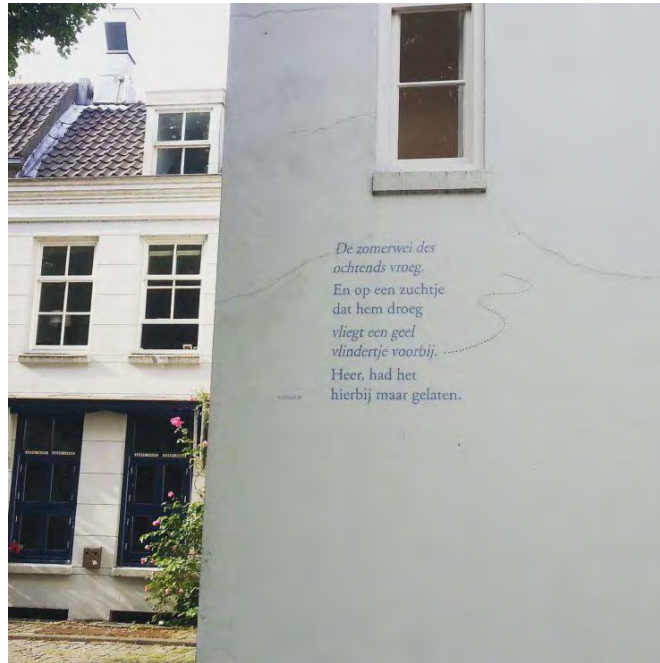 De zomerwei des
ochtends vroeg.
En op een zuchtje
dat hem droeg
vliegt een geel
vlindertje voorbij.
Heer, had het
hierbij maar gelaten.